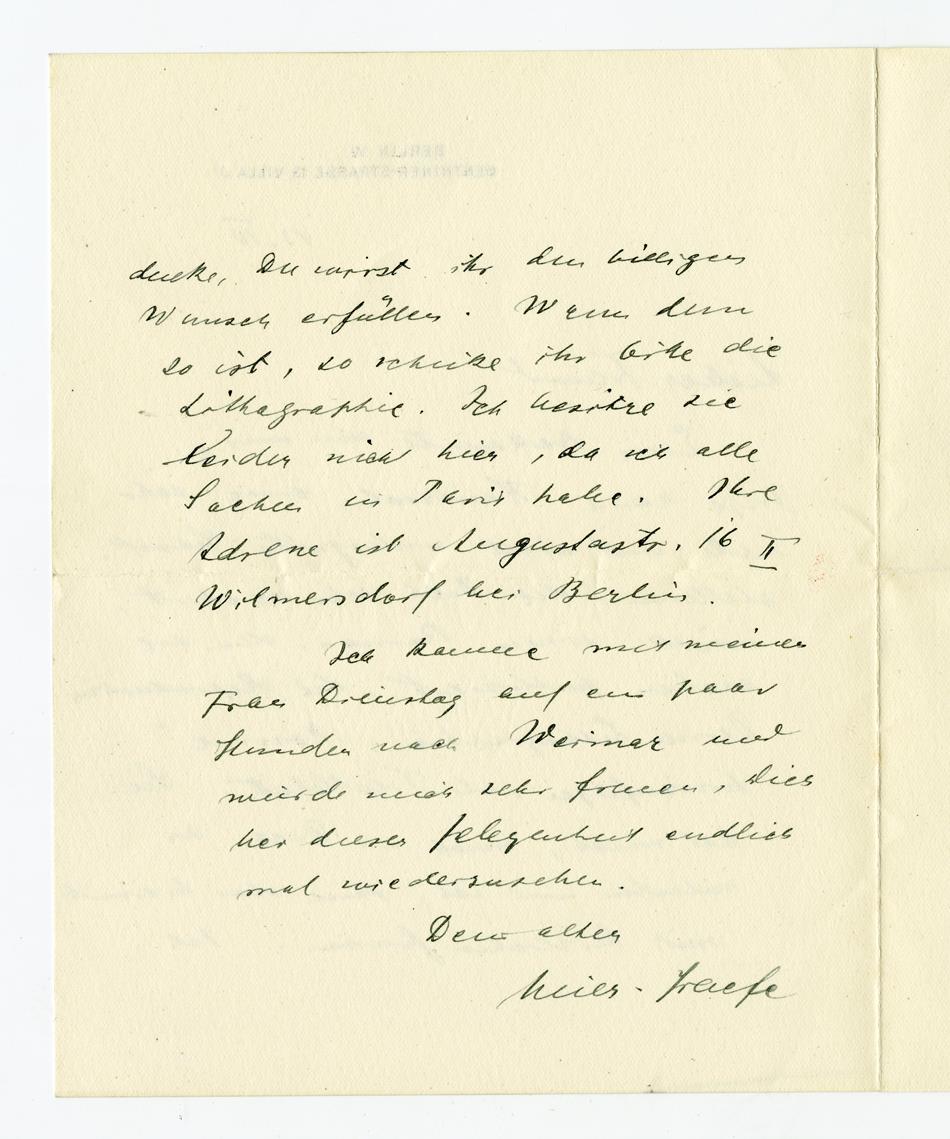 denke, Du wirst ihr den billigen
Wunsch erfüllen. Wenn dem
so ist, so schicke ihr bitte die
Lithographie. Ich besitze sie
leider nicht hier, da ich alle
Sachen in Paris habe. Ihre
Adresse ist Augustastr. 16 II
Wilmersdorf bei Berlin.
Ich komme mit meiner
Frau Dienstag auf ein paar
Stunden nach Weimar und
würde mich sehr freuen, Dich
bei dieser Gelegenheit endlich
mal wiederzusehen.
Dein alter
Meier-Graefe